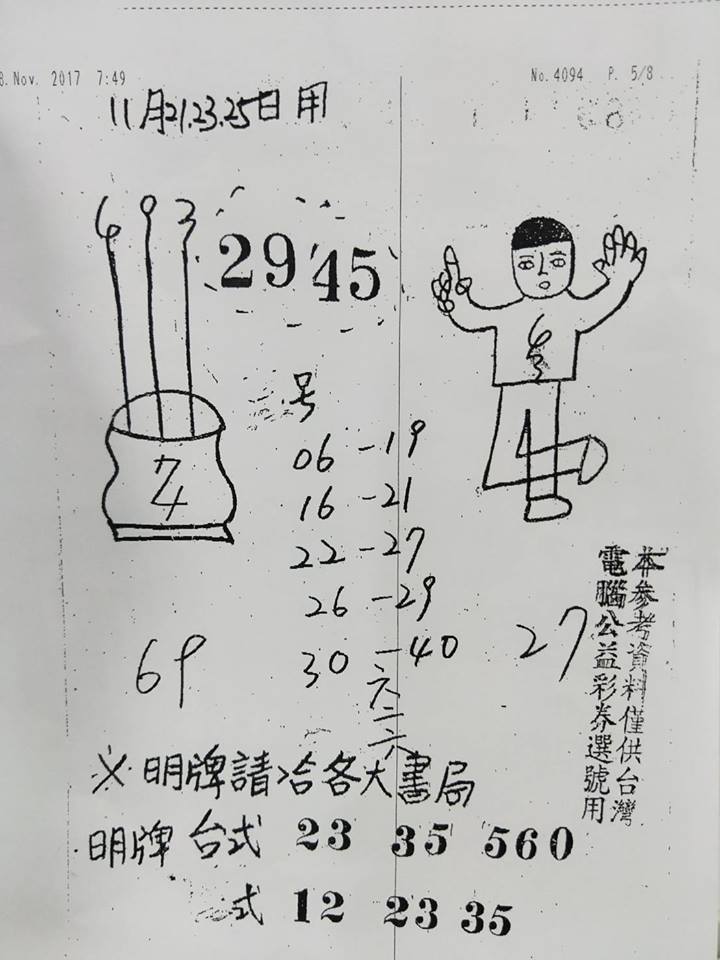 8.Nov. 2017 7:49
No.4094 P. 5/8
11月21.23.25日用
6 9 3
29 45
6
3
1
号
06 - 19
74
16 - 21
22 - 27
26 - 29
30 - 40
69
27
六二六
本參考資料僅供台灣
電腦公益彩券選號用
※明牌請洽各大書局
明牌 台式 23 35 560
式 12 23 35